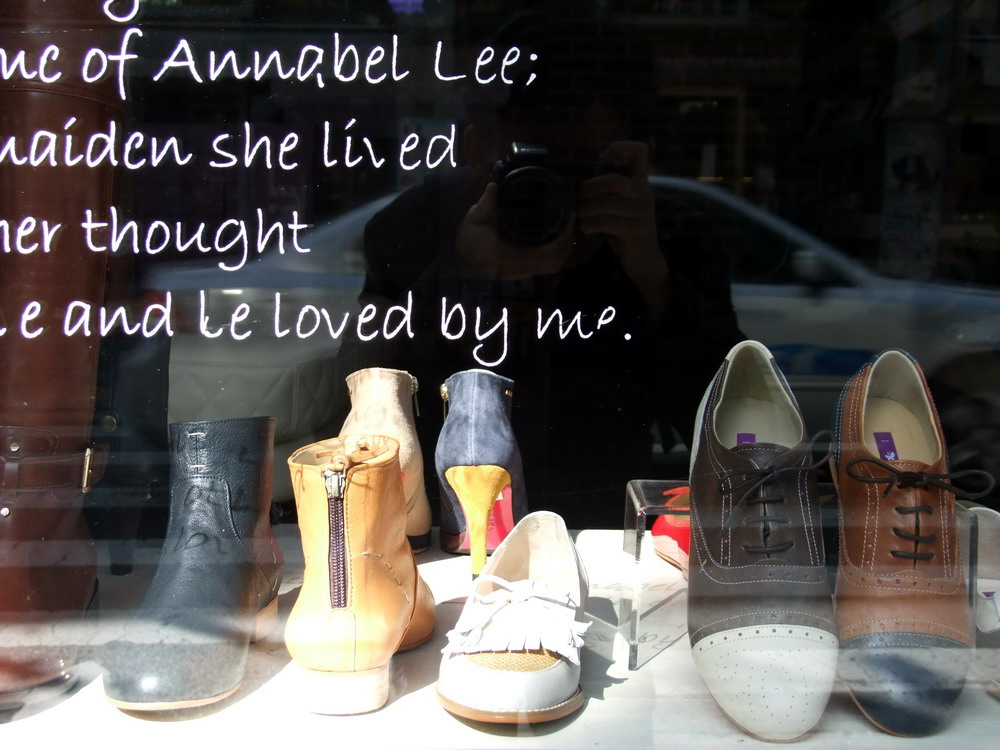 of Annabel Lee;
maiden she lived
her thought
e and be loved by me.